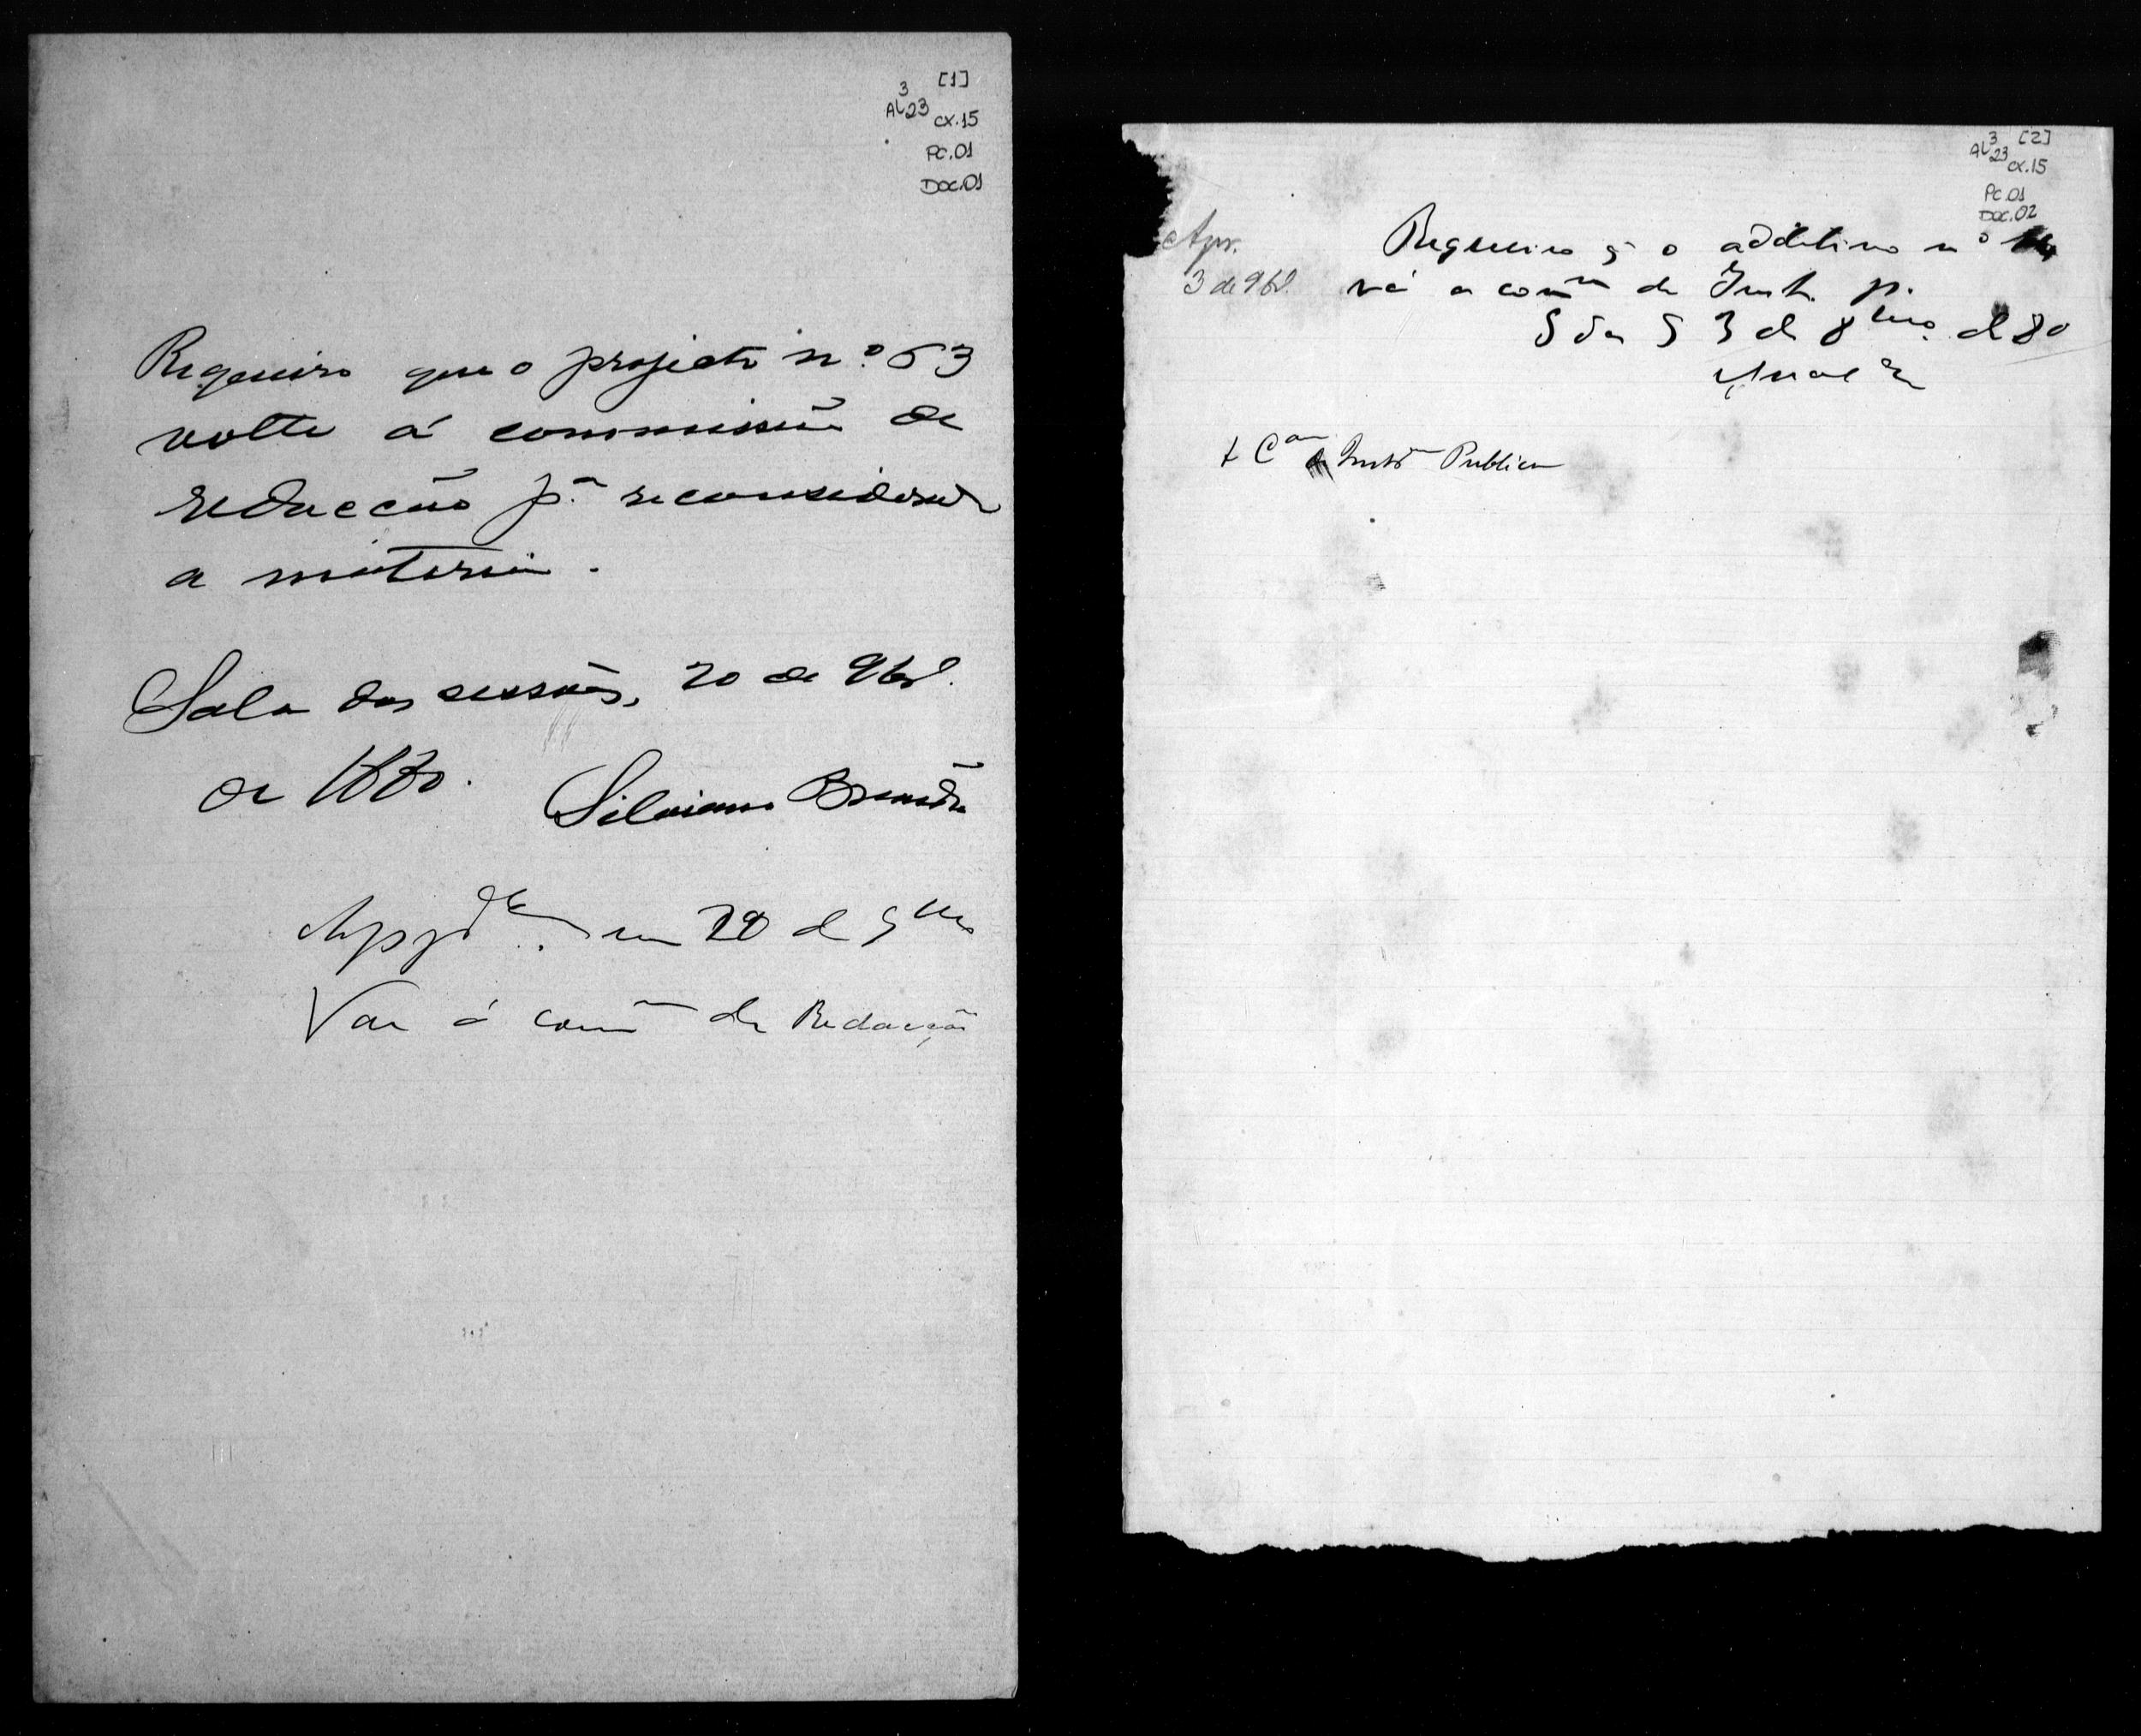 [1]
AL 3 23 cx.15
PC.01
DOC.01
Requeiro que o projecto n.º 53
volte á commissão de
redacção p.ª reconsiderar
a materia.
Sala das sessões, 20 de 9br.
de 1880. Silviano Brandão
em 20 de 9bro
Vae á comm de Redacção
[2]
AL 3 23 cx.15
PC.01
DOC.02
Apr.
3 de 9br.
Requeiro q̃ o additivo nº
vá a comm de Inst. p.
S das S 3 de 8bro. de 80
Cam de Instrm Publica